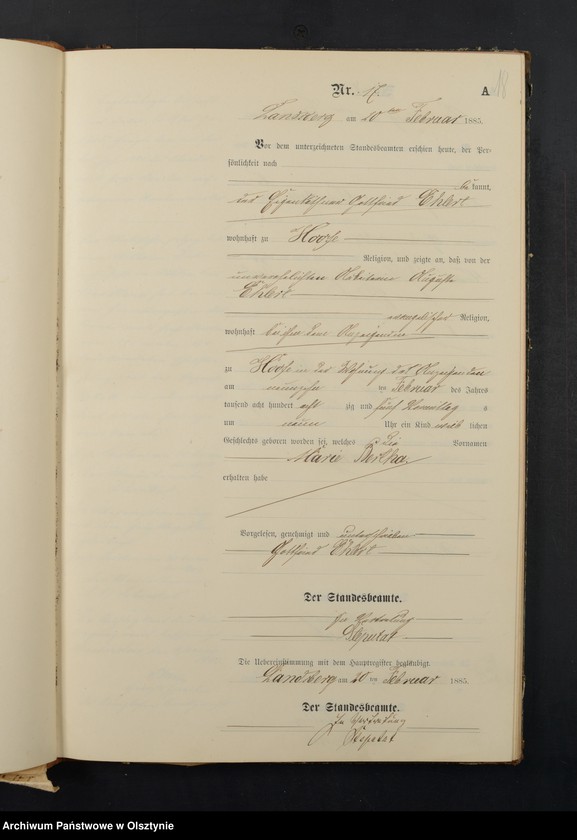 18
Nr. 17. A
Landsberg am 20ten Februar 1885.
Vor dem unterzeichneten Standesbeamten erschien heute, der Per-
sönlichkeit nach
kannt,
Gottfried Ehlert
wohnhaft zu Hoofe
Religion, und zeigte an, daß von der
unverehelichten Auguste
Ehlert
evangelischer Religion,
wohnhaft bei ihm dem Anzeigenden
zu Hoofe in der Wohnung des Anzeigenden
am neunzehn ten Februar des Jahres
tausend acht hundert acht zig und fünf Vormittag s
um neun Uhr ein Kind weib lichen
Geschlechts geboren worden sei, welches die Vornamen
Marie Bertha
erhalten habe
Vorgelesen, genehmigt und unterschrieben
Gottfried Ehlert
Der Standesbeamte.
In Vertretung
Die Uebereinstimmung mit dem Hauptregister beglaubigt.
Landsberg am 20 ten Februar 1885.
Der Standesbeamte.
In Vertretung
Archiwum Państwowe w Olsztynie